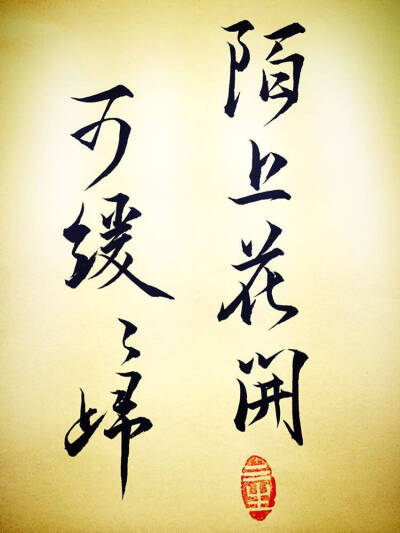 陌上花開
可緩〻歸